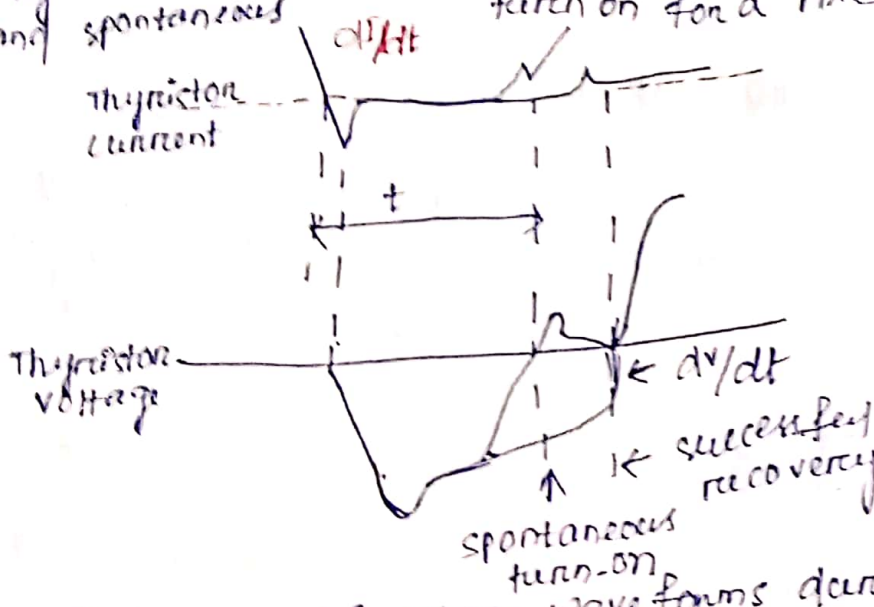 and spontaneous
turn on for a
dI/dt
Thyristor
current
t
Thyristor
voltage
← dv/dt
← successful
recovery
spontaneous
turn-on
forms